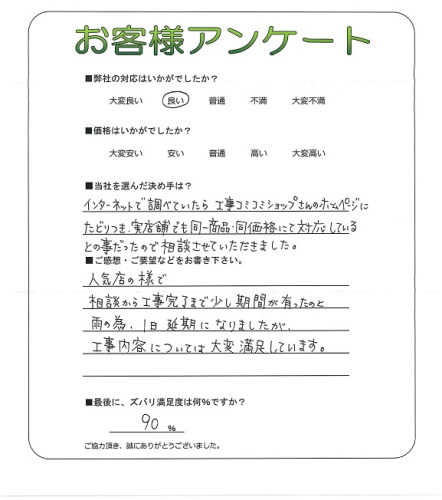 お客様アンケート
■弊社の対応はいかがでしたか？
大変良い 良い 普通 不満 大変不満
■価格はいかがでしたか？
大変安い 安い 普通 高い 大変高い
■当社を選んだ決め手は？
インターネットで調べていたら工事コミコミショップさんのホームページに
たどりつき、実店舗でも同一商品・同価格にて対応している
との事だったので相談させていただきました。
■ご感想・ご要望などをお書き下さい。
人気店の様で
相談から工事完了まで少し期間が有ったのと
雨の為、1日延期になりましたが、
工事内容については大変満足しています。
■最後に、ズバリ満足度は何%ですか？
90 %
ご協力頂き、誠にありがとうございました。